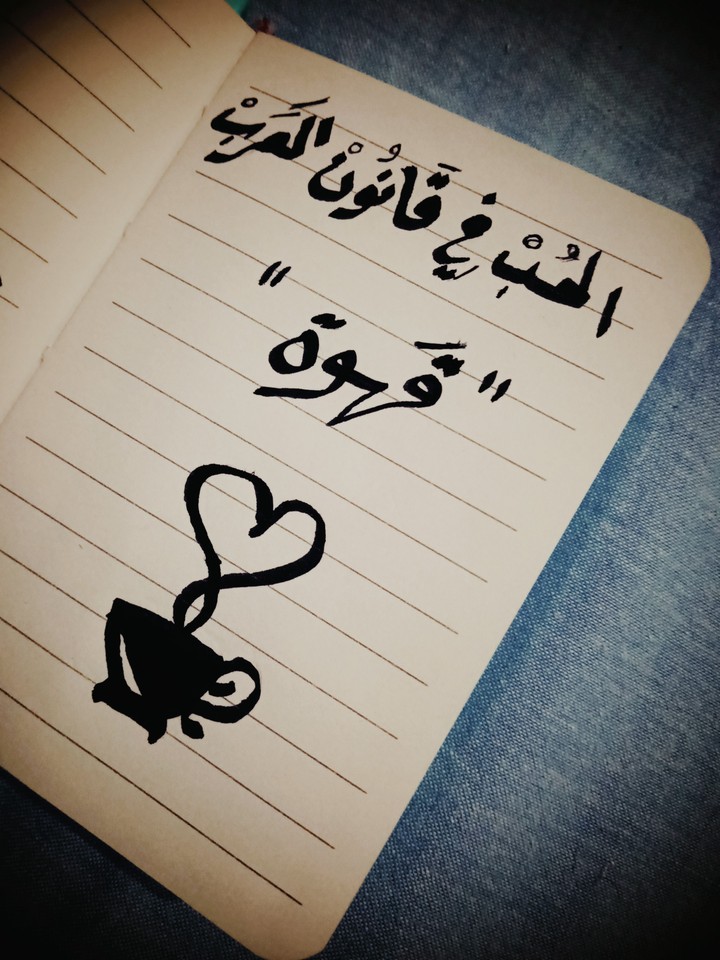 الحُبْ في قَانُونْ العَرَبْ
"قَهوة"